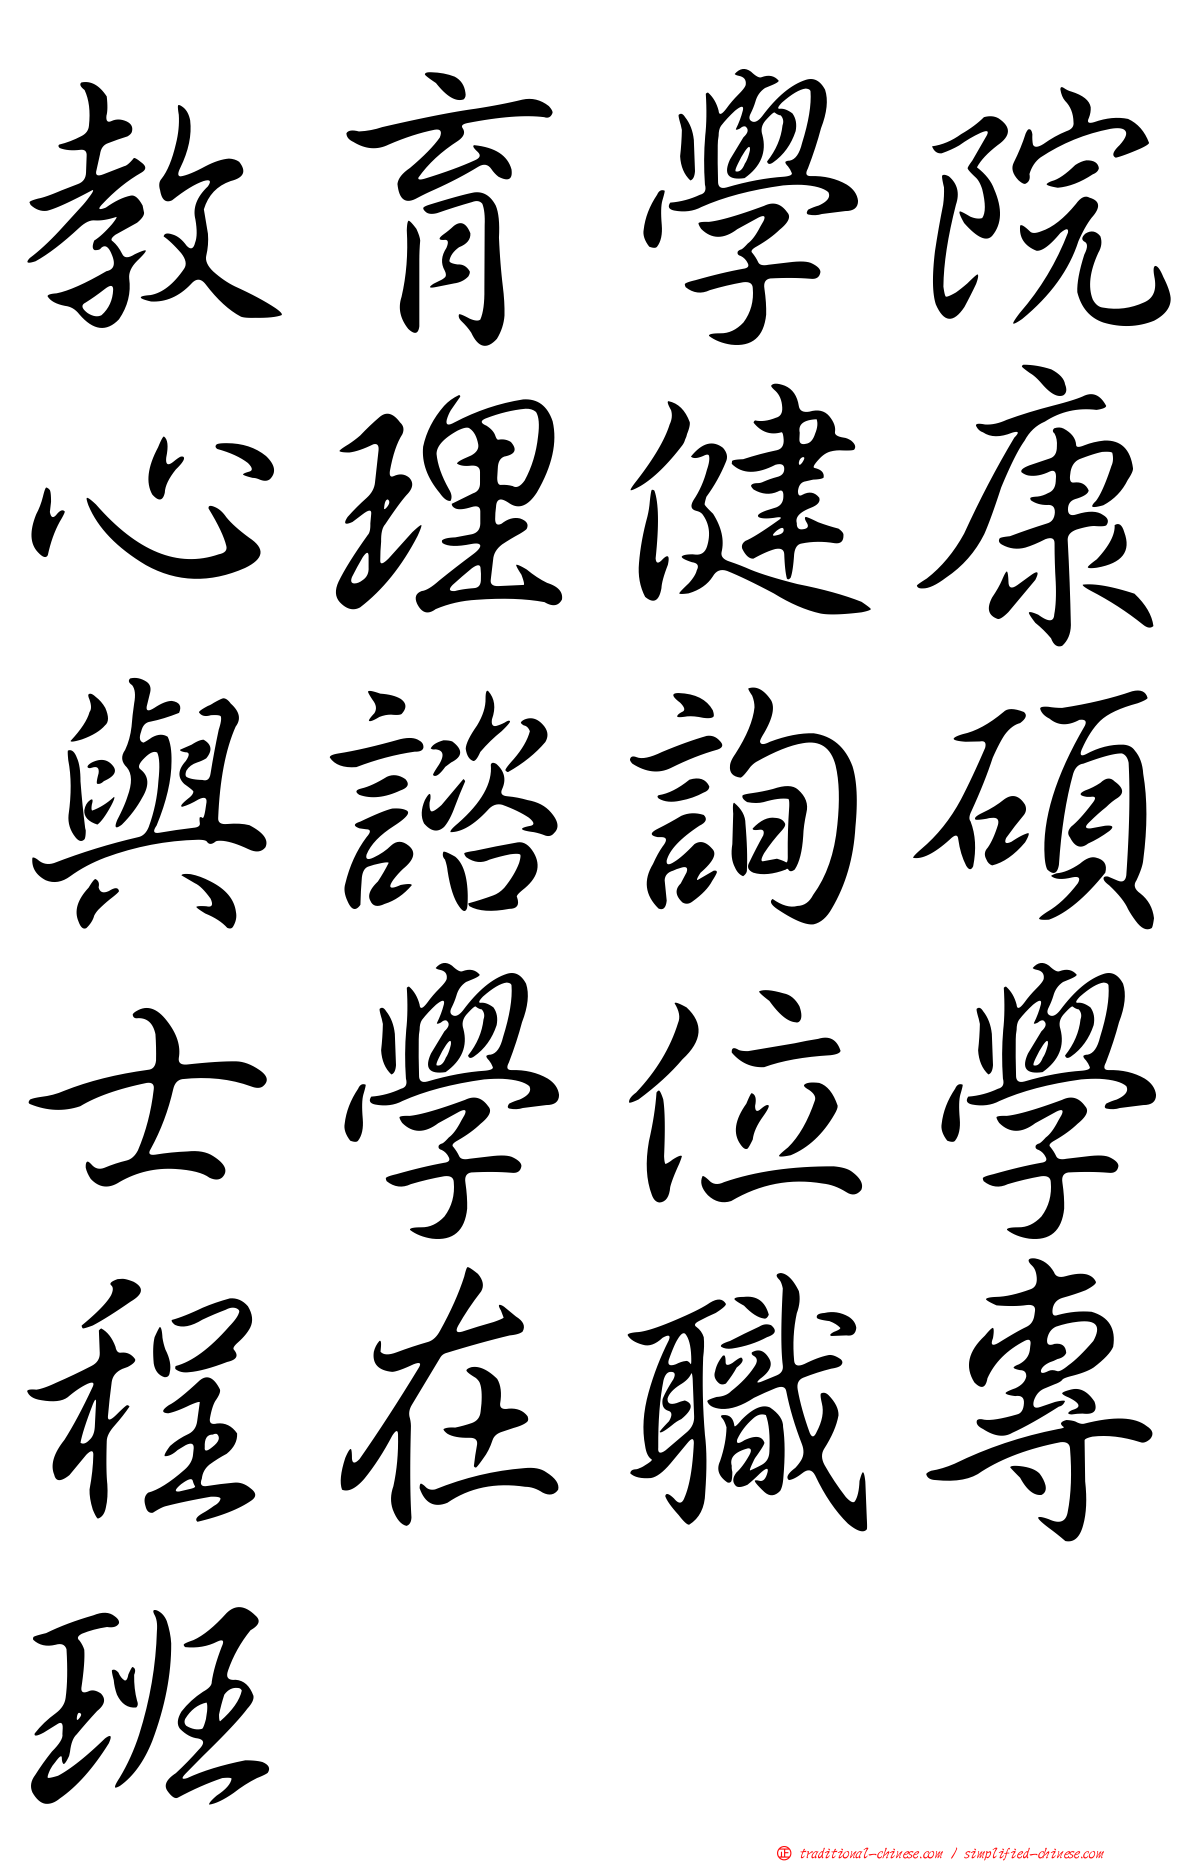 教育學院
心理健康
與諮詢碩
士學位學
程在職專
班
正 traditional-chinese.com / simplified-chinese.com